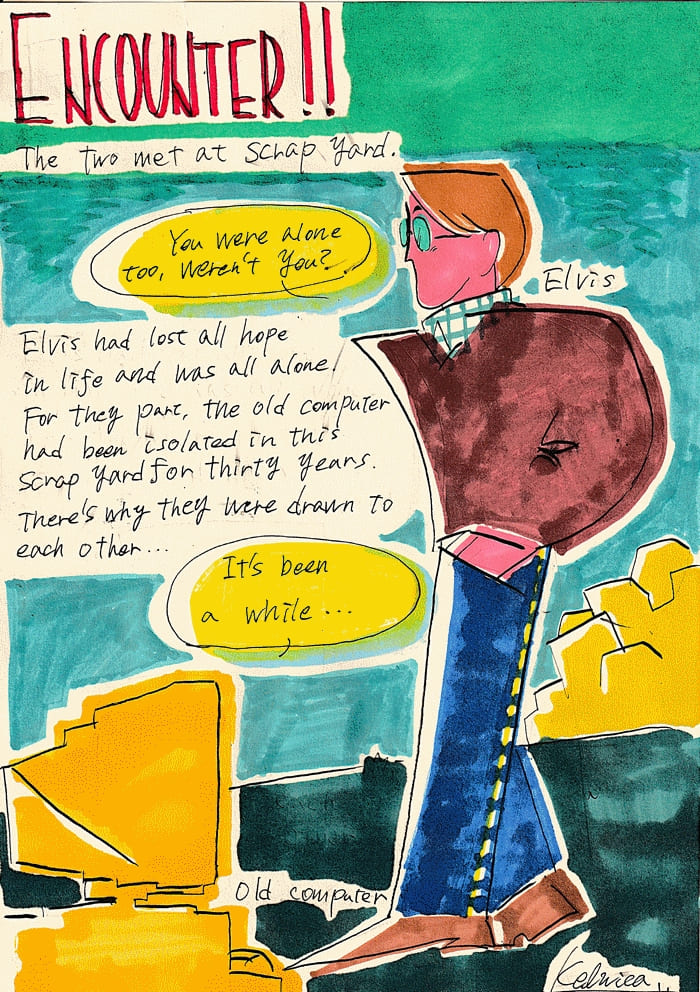 ENCOUNTER!!
The two met at Scrap Yard.
You were alone
too, weren't you?
Elvis
Elvis had lost all hope
in life and was all alone.
For they part, the old computer
had been isolated in this
Scrap Yard for thirty years.
There's why they were drawn to
each other...
It's been
a while...
Old computer